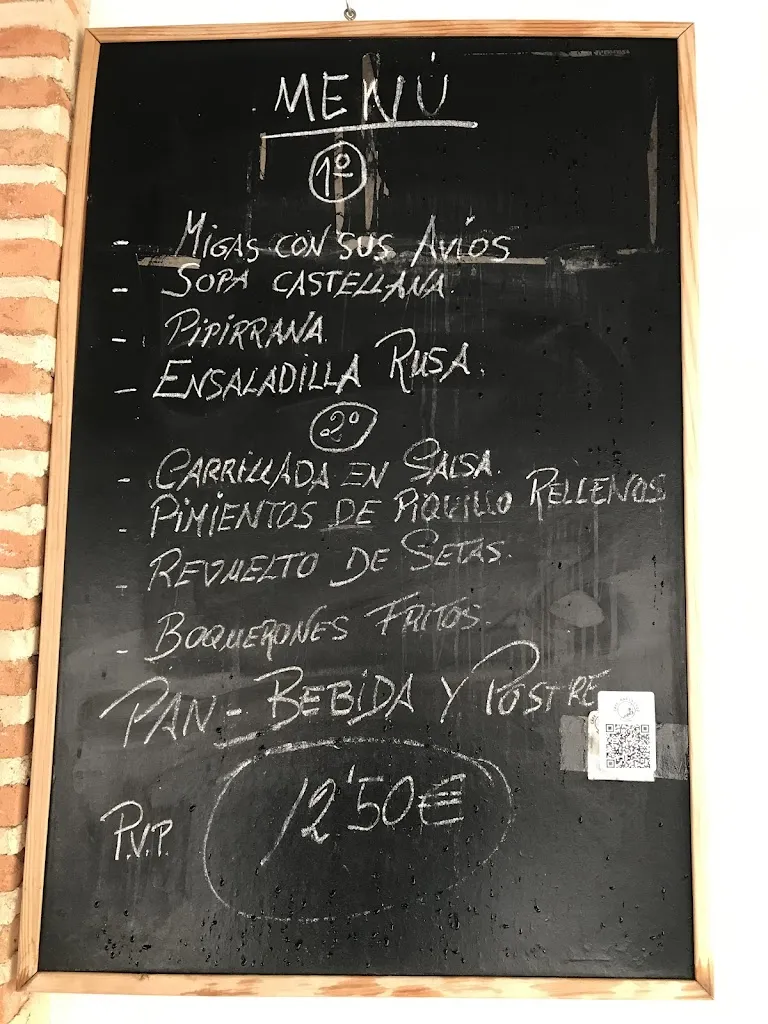 MENÚ
1º
- MIGAS CON SUS AVÍOS
- SOPA CASTELLANA.
- PIPIRRANA
- ENSALADILLA RUSA.
2º
- CARRILLADA EN SALSA.
- PIMIENTOS DE PIQUILLO RELLENOS
- REVUELTO DE SETAS.
- BOQUERONES FRITOS.
PAN - BEBIDA Y POSTRE
P.V.P. 12'50€